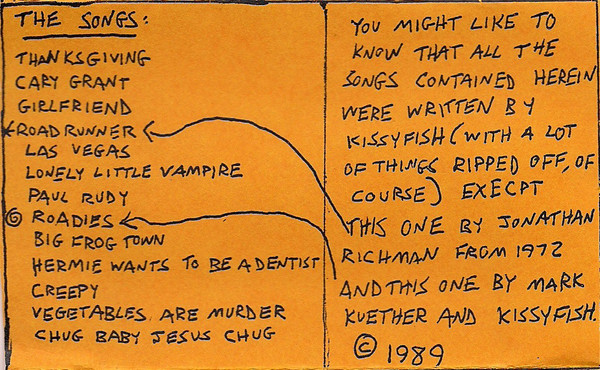 THE SONGS:
THANKSGIVING
CARY GRANT
GIRLFRIEND
ROADRUNNER
LAS VEGAS
LONELY LITTLE VAMPIRE
PAUL RUDY
ROADIES
BIG FROG TOWN
HERMIE WANTS TO BE A DENTIST
CREEPY
VEGETABLES ARE MURDER
CHUG BABY JESUS CHUG
YOU MIGHT LIKE TO
KNOW THAT ALL THE
SONGS CONTAINED HEREIN
WERE WRITTEN BY
KISSYFISH (WITH A LOT
OF THINGS RIPPED OFF, OF
COURSE) EXECPT
THIS ONE BY JONATHAN
RICHMAN FROM 1972
AND THIS ONE BY MARK
KUETHER AND KISSYFISH.
© 1989